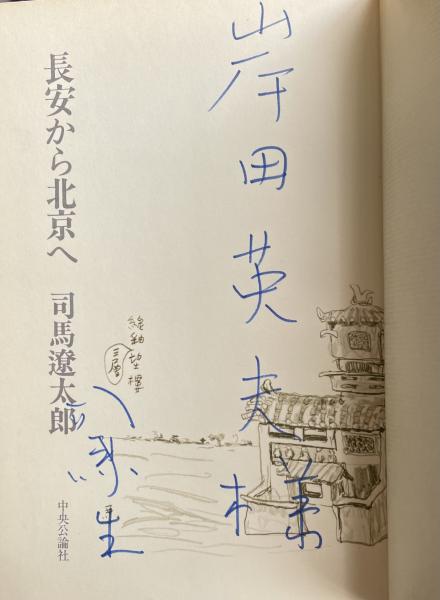 岸田英夫様
緑釉
三層
長安から北京へ 司馬遼太郎
中央公論社